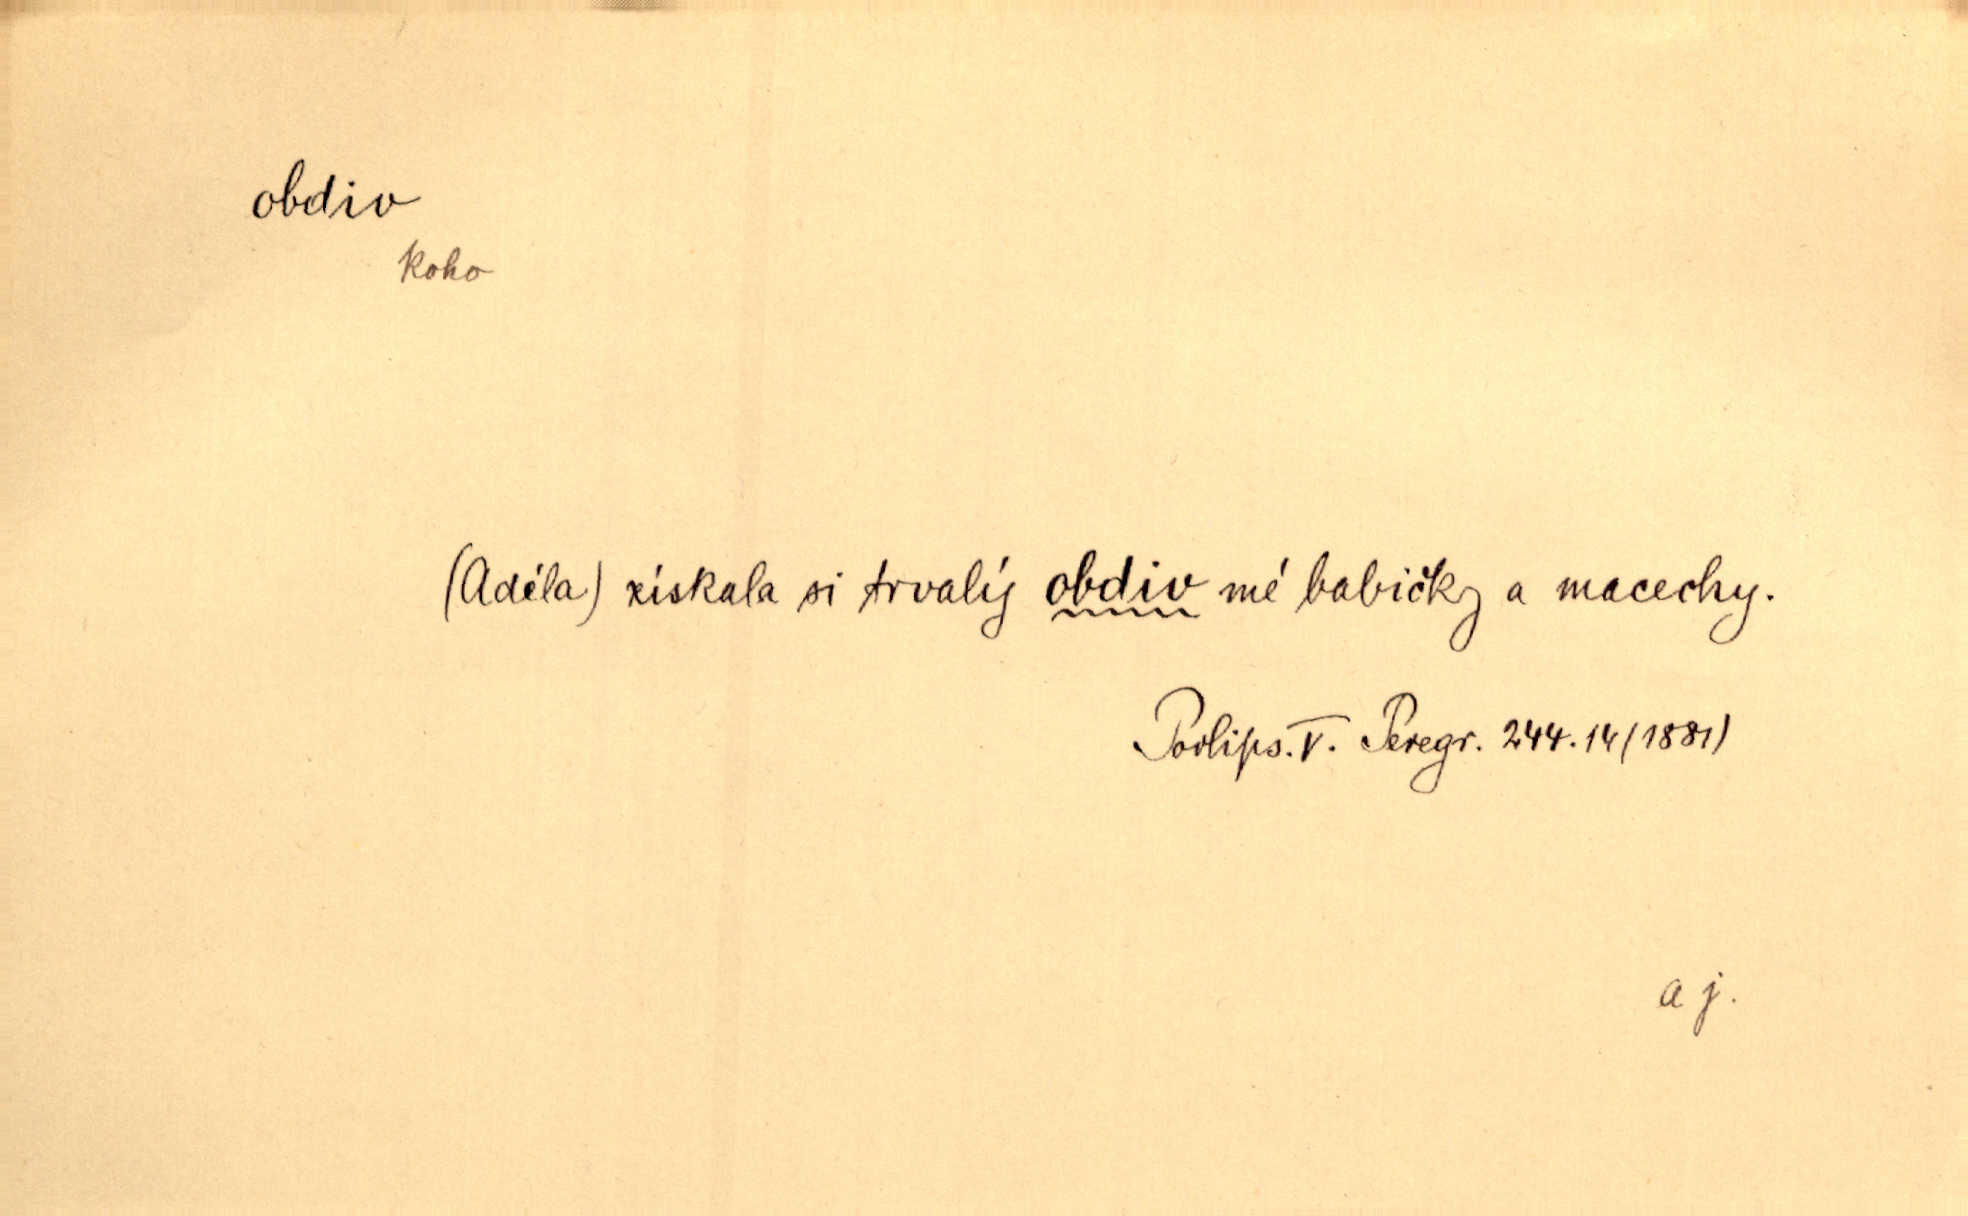 obdiv
koho
(Adéla) získala si trvalý obdiv mé babičky a macechy.
Podlips. V. Peregr. 244.14 (1881)
a j.